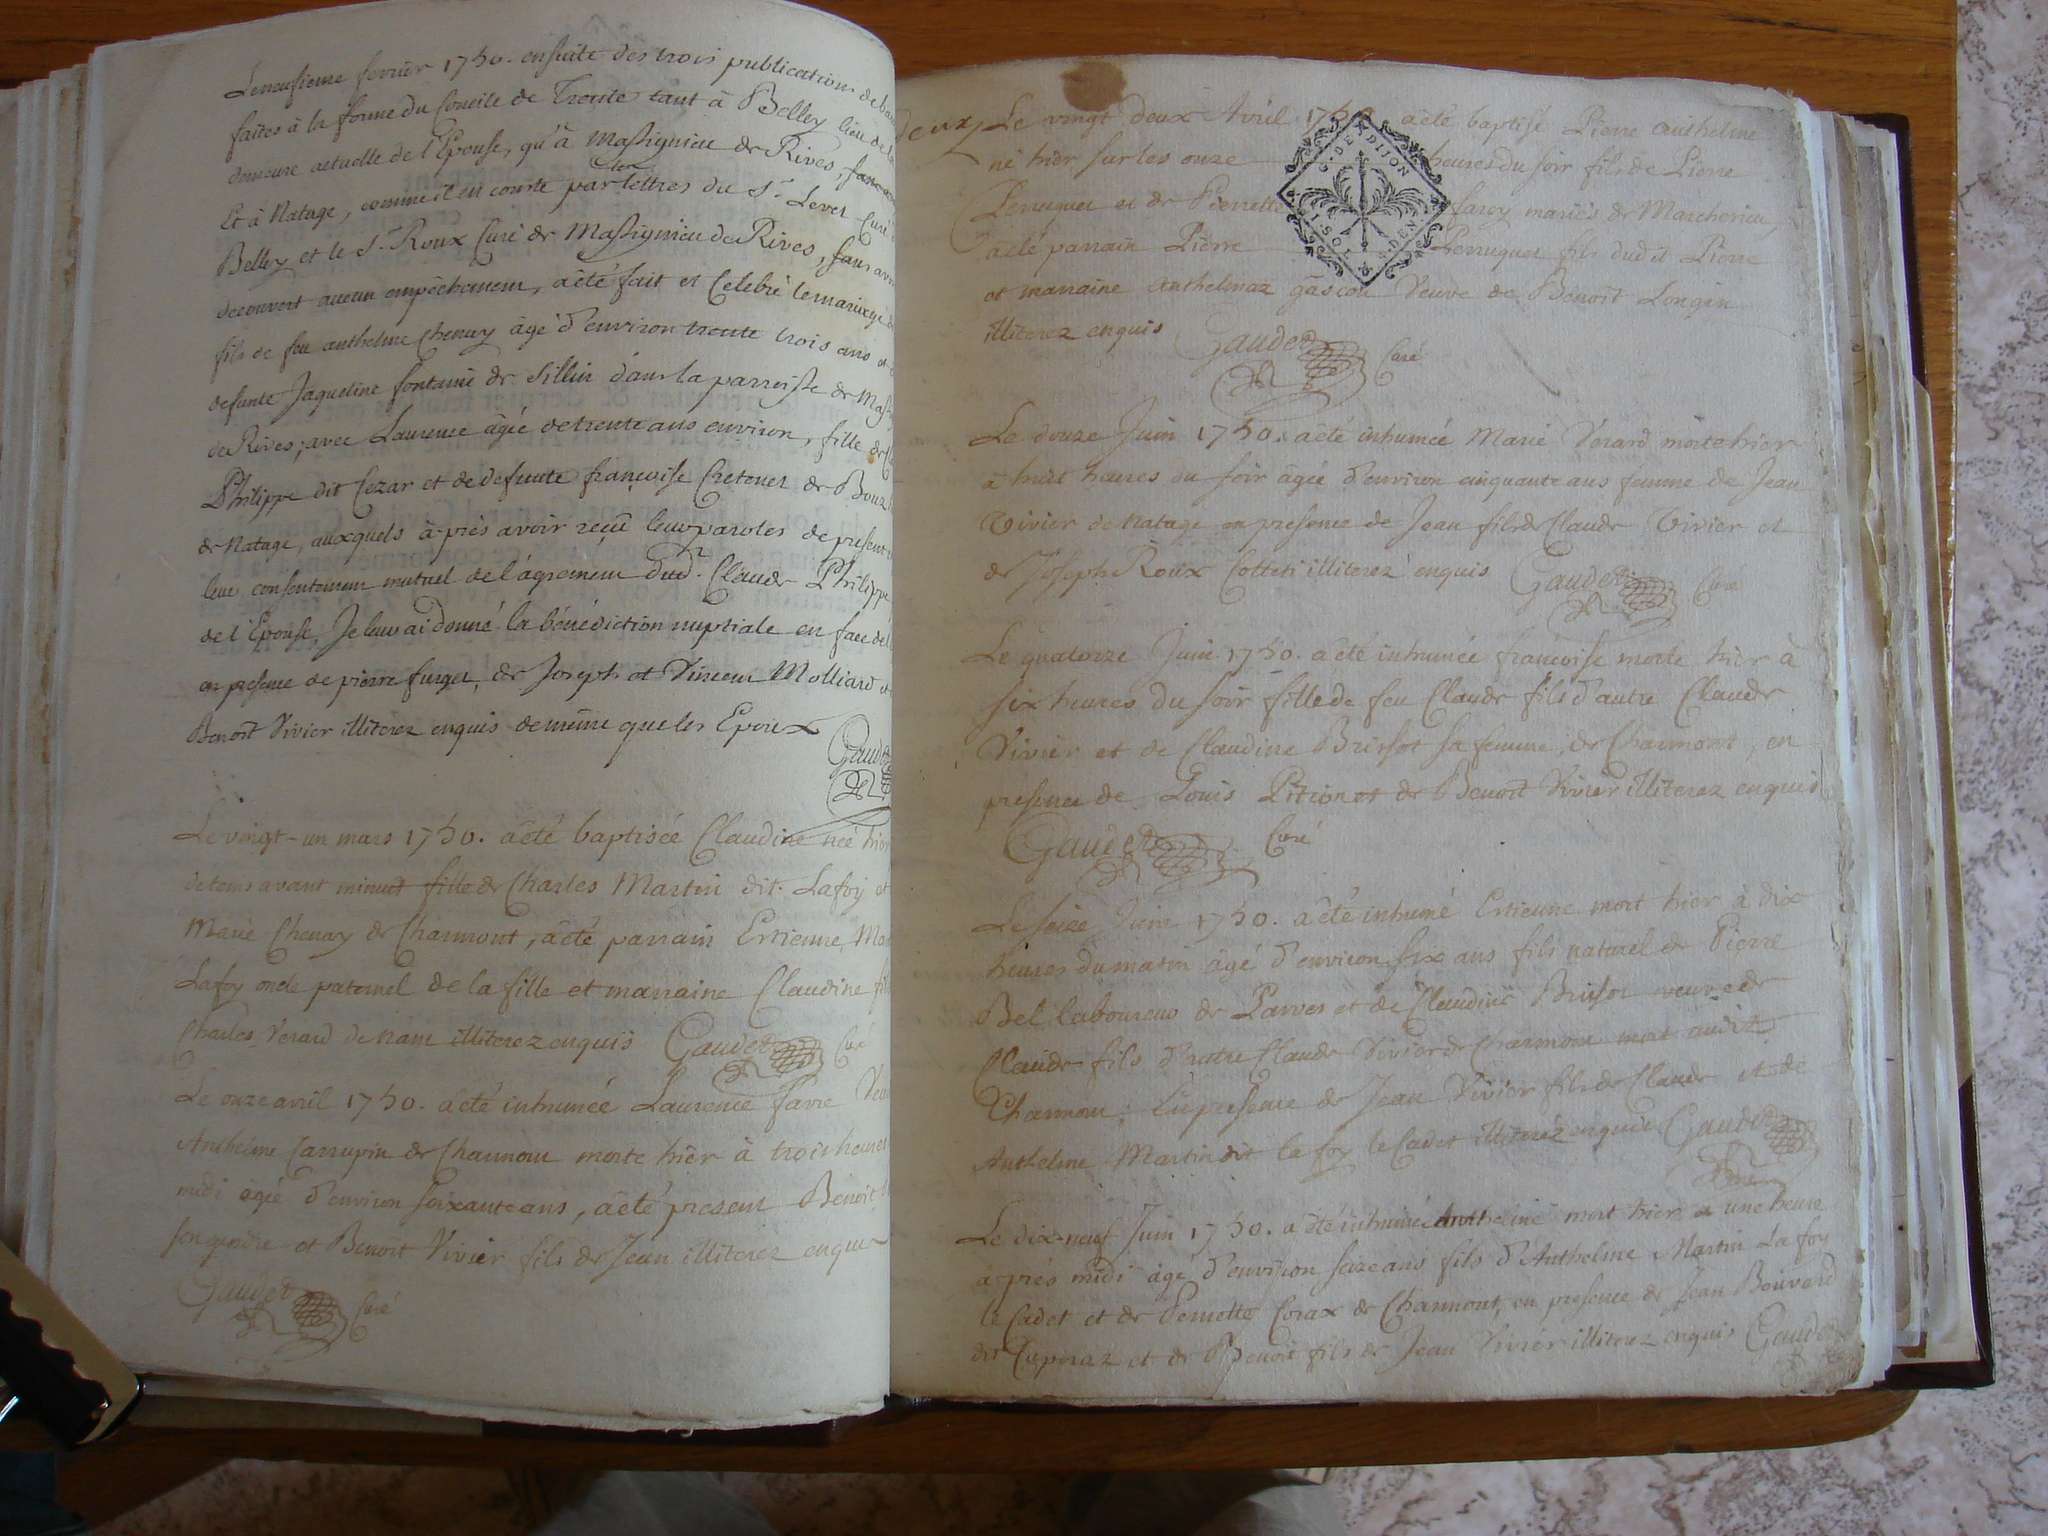 Le neufieme fevrier 1750. ensuite des trois publications de
faites à la forme du Concile de Trente tant à Belley lieu de la
demeure actuelle de l'Epouse, qu'à Massignieu de Rives,
Et à Natage, comme il en conste par lettres du Sr. Levet Curé
Belley et le Sr. Roux Curé de Massignieu de Rives, sans avoir
decouvert aucun empêchement, a été fait et Celebré le mariage
fils de feu anthelme Chenay âgé d'environ trente trois ans et
defunte Jaqueline fontaine de Sillin dans la parroisse de
de Rives; avec Laurence âgée de trente ans environ, fille de
Philippe dit Cezar et de defunte françoise Chetonet de
de Natage, auxquels à près avoir reçû leurs paroles de present
leur consentement mutuel de l'agrement dud. Claude Philippe
de l'Epouse, Je leur ai donné la bénédiction nuptiale en face de
en presence de pierre furget, de Joseph et Vincent Molliard et
Benoît Vivier illiterez enquis de même que les Epoux
Gaudet
Le vingt-un mars 1750. a été baptisée Claudine née hier
avant minuit fille de Charles Martin dit Lafoy et
Marie Chenay de Charmont, a été parrain Estienne
Lafoy oncle paternel de la fille et marraine Claudine
Charles Verard de illiterez enquis Gaudet Curé
Le onze avril 1750. a été inhumée Laurence favre
Anthelme Carrupin de Charmont morte hier à trois heures
midi âgée d'environ soixante ans, a été present Benoit
son gendre et Benoit Vivier fils de Jean illiterez enquis
Gaudet Curé
deux
Le vingt deux Avril 1750 a été baptisé Pierre anthelme
né hier sur les onze heures du soir fils de Pierre
Perruquet et de Pierrette favoy mariés de Marcherieu,
a été parrain Pierre Perruquet fils dudit Pierre
et marraine anthelmaz gascon Veuve de Benoît Longin
illiterez enquis Gaudet Curé
G. DE DIJON
SOL
DEN
Le douze Juin 1750. a été inhumée Marie Verard morte hier
à huit heures du soir âgée d'environ cinquante ans femme de Jean
Vivier de Natage en presence de Jean fils de Claude Vivier et
de Joseph Roux Collet illiterez enquis Gaudet Curé
Le quatorze Juin 1750. a été inhumée françoise morte hier à
six heures du soir fille de feu Claude fils d'autre Claude
Vivier et de Claudine Brissot sa femme, de Charmont, en
presence de Louis Pition et de Benoît Vivier illiterez enquis
Gaudet Curé
Le seize Juin 1750. a été inhumé Estienne mort hier à dix
heures du matin âgé d'environ six ans fils naturel de Pierre
Bel laboureur de Parves et de Claudine Brissot veuve de
Claude fils d'autre Claude Vivier de Charmont mort audit
Charmont, En presence de Jean Vivier fils de Claude et de
Anthelme Martin dit la foy le Cadet illiterez enquis Gaudet
Curé
Le dix-neuf Juin 1750. a été inhumé Anthelme mort hier à une heure
après midi âgé d'environ seize ans fils d'Anthelme Martin La foy
le Cadet et de Pernette Corax de Charmont, en presence de Jean Bouvard
dit Cuperaz et de Benoit fils de Jean Vivier illiterez enquis Gaudet